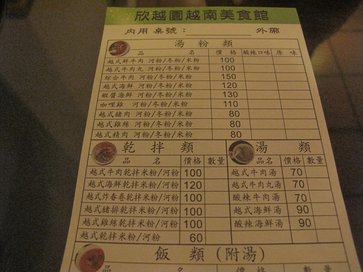 欣越園越南美食館
內用 桌號： 外帶
湯 粉 類
品 名 價 格 酸辣口味 原 味
越式鮮牛肉 河粉/冬粉/米粉 100
越式牛肉丸 河粉/冬粉/米粉 100
綜合牛肉 河粉/冬粉/米粉 150
越式海鮮 河粉/冬粉/米粉 120
椒醬海鮮 河粉/冬粉/米粉 130
咖哩雞 河粉/冬粉/米粉 110
越式豬肉 河粉/冬粉/米粉 80
越式雞絲 河粉/冬粉/米粉 80
越式精肉 河粉/冬粉/米粉 80
乾 拌 類
品 名 價格 數量
越式牛肉乾拌米粉/河粉 100
越式海鮮乾拌米粉/河粉 120
越式炸春卷乾拌米粉/河粉 100
越式豬排乾拌米粉/河粉 100
越式雞絲乾拌米粉/河粉 100
越式乾拌米粉/河粉 60
湯 類
品名 價格 數量
越式牛肉湯 70
越式牛肉丸湯 70
酸辣牛肉湯 70
越式海鮮湯 90
酸辣海鮮湯 90
飯 類 (附湯)
品 名 價格 數量